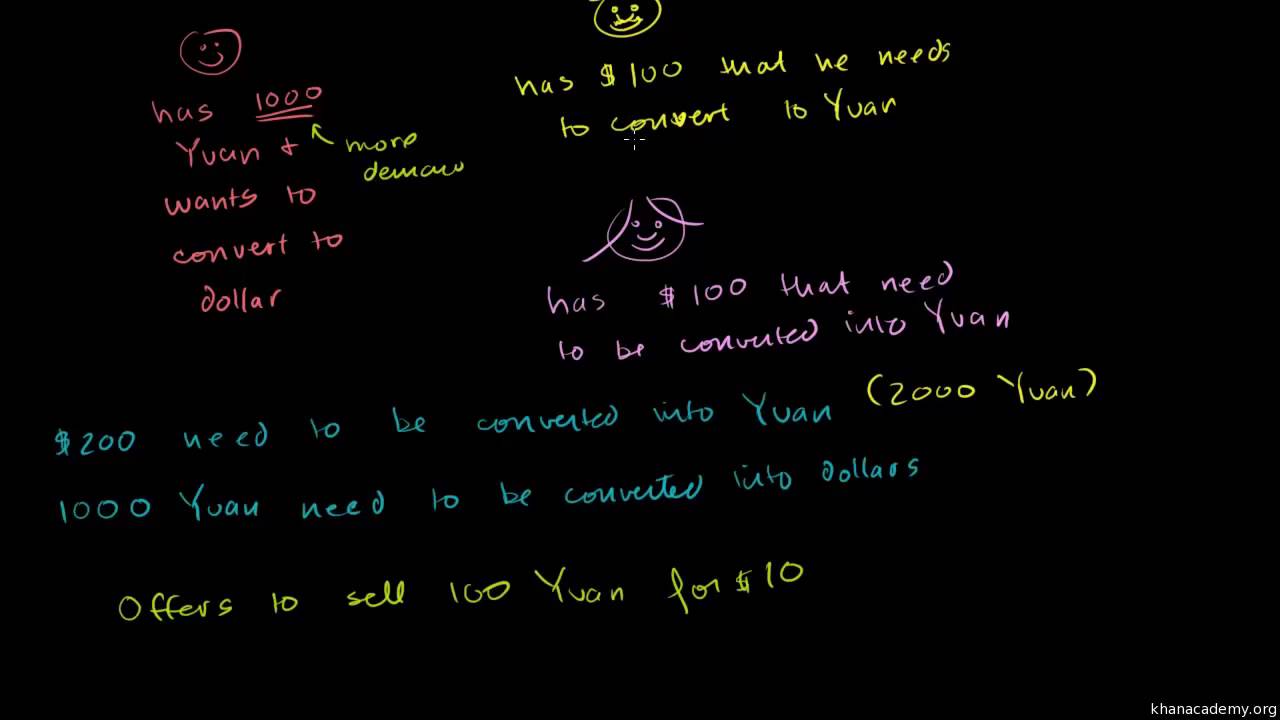 has 1000
Yuan +
wants to
convert to
dollar
more
deman
has $100 that he needs
to convert to Yuan
has $100 that need
to be converted into Yuan
$200 need to be converted into Yuan (2000 Yuan)
1000 Yuan need to be converted into dollars
Offers to sell 100 Yuan for $10
khanacademy.org